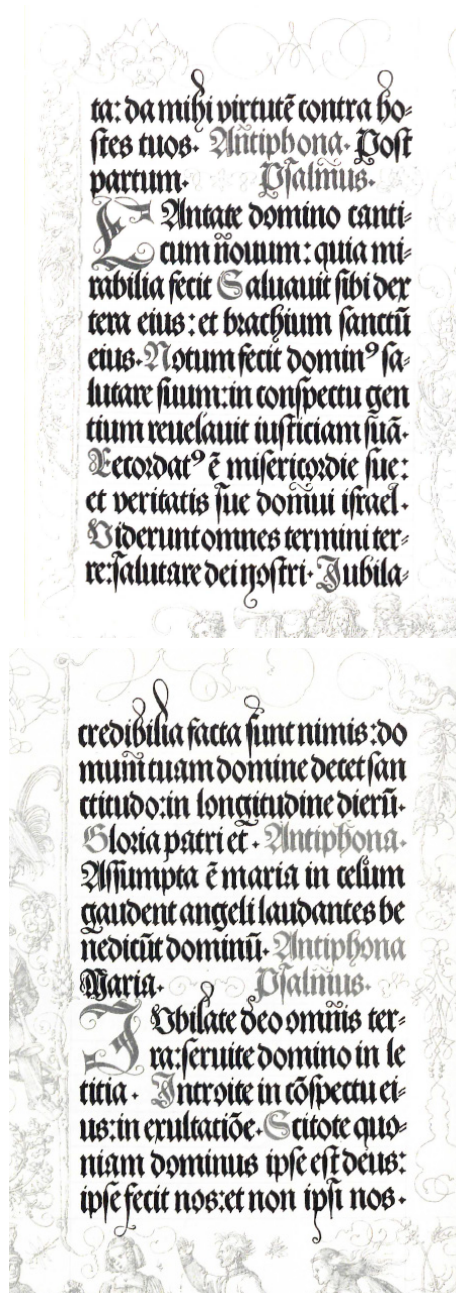 ta: da mihi virtutē contra ho-
stes tuos. Antiphona. Post
partum. Psalmus.
CAntate domino canti-
cum nouum: quia mi-
rabilia fecit Saluauit sibi dex
tera eius: et brachium sanctū
eius. Notum fecit dominꝰ sa-
lutare suum: in conspectu gen
tium reuelauit iusticiam suā.
Recordatꝰ ē misericordie sue:
et veritatis sue domui israel.
Viderunt omnes termini ter-
re: salutare dei nostri. Jubila-
credibilia facta sunt nimis: do
mum tuam domine decet san
ctitudo: in longitudine dierū.
Gloria patri et. Antiphona.
Assumpta ē maria in celum
gaudent angeli laudantes be
nedicūt dominū. Antiphona
Maria. Psalmus.
JVbilate deo omnis ter-
ra: seruite domino in le
titia. Introite in cōspectu ei-
us: in exultatiōe. Scitote quo-
niam dominus ipse est deus:
ipse fecit nos: et non ipsi nos.